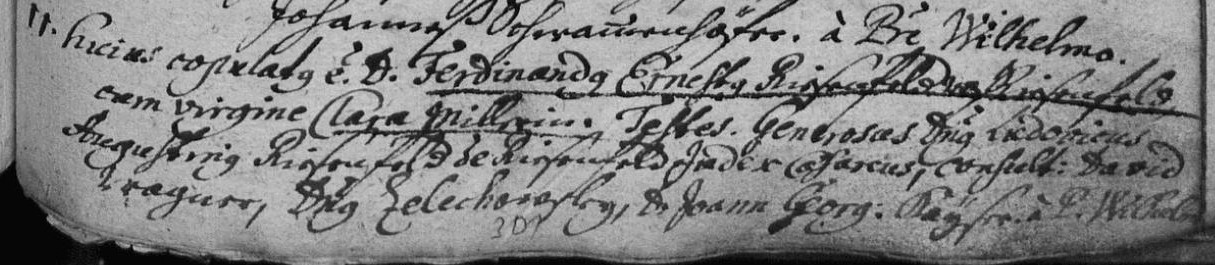 Johannes Schwammenhöfer. à Pre Wilhelmo.
11. huius copulatq é. D. Ferdinandq Ernestq Riesenfeld de Riesenfeld
cum virgine Clara Millerin. Testes. Generosus Dnq Ludovicus
Augustinq Riesenfeld de Riesenfeld Judex Caesareus, consult: David
Wagner, Dnq Zelechowsky, D. Joann Georg: Kayser. à P. Wilhelm
301